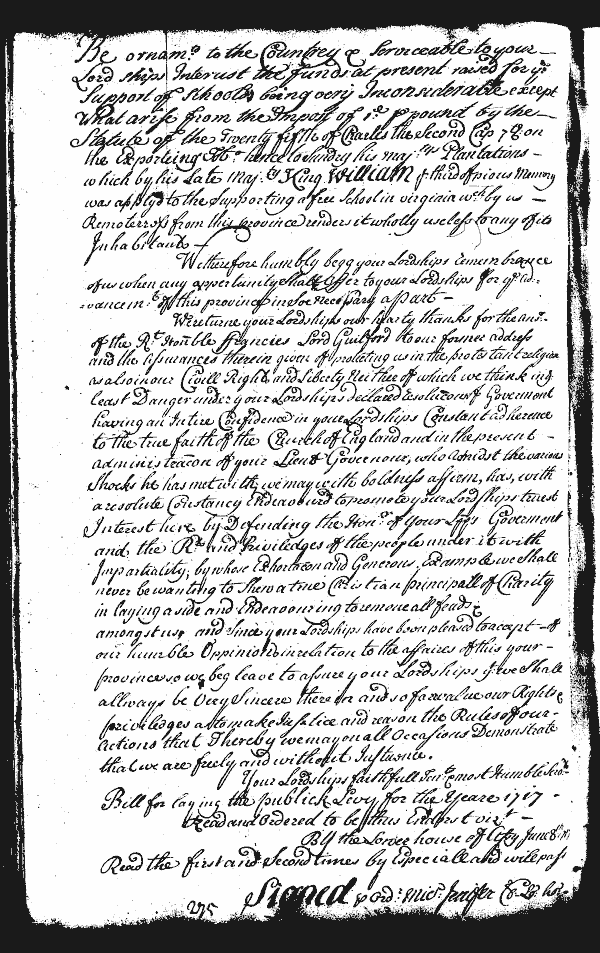 Be ornam.t to the Countrey & Serviceable to your
Lordships Interest the funds at present raised for ye
Support of Schools being very Inconsiderable except
what arise from the Impost of 1d. p pound by the
Statute of the Twenty fifth of Charles the Second Cap 7th on
the Exporting hence to Sundry his maj.tys Plantations
which by his Late Maj.ty King William of pious Memory
was applyd to the Supporting a free School in virginia wch by us
Remoteness from this province renders it wholly useless to any of its
Inhabitants
We therefore humbly begg your Lordships remembrance
of us when any oppertunity shall offer to your Lordships for ye ad=
=vancem.t of this province in soe necessary a part
We returne your Lordships our hearty thanks for the ans.r
of the Rt Honble Lord Guilford to our former address
and the assurances therein given of protecting us in the protestant religion
as also in our Civill Rights and Liberty Neither of which we think in ye
least Danger under your Lordships Government
having an Intire Confidence in your Lordships Constant adherence
to the true faith of the Church of England and in the present
administracon of your Lieut Governour, who amidst the various
Shocks he has met with, we may with boldness affirm, has, with
a resolute Constancy Endeavourd to promote your Lordships truest
Interest here by Defending the Hon.r of your Lpps Goverment
and the Rts and Priviledges of the people under it with
Impartiality; by whose Exhortacon and Generous Example we Shall
never be wanting to Shew a true Christian principall of Charity
in laying aside and Endeavouring to remove all feuds
amongst us, and since your Lordships have been pleased to accept of
our humble Oppinion in relation to the affaires of this your
province so we beg leave to assure your Lordships yt we Shall
allways be Very Sincere therein and so far value our Rights &
priviledges as to make Justice and reason the Rules of our
actions that Thereby we may on all Occasions Demonstrate
that we are freely and without
Your Lordships faithfull most Humble
Bill for laying the publick Levy for the Yeare 1717
Read and Ordered to be thus Endorst viz.t
By the house of
Read the first and Second times by Especiall and will pass
Signed p ord.r Mich. Jenifer